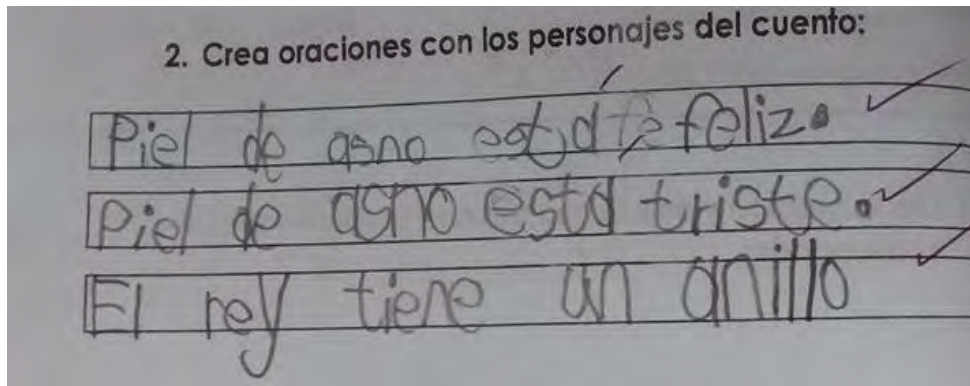 2. Crea oraciones con los personajes del cuento:
Piel de asno está feliz.
Piel de asno está triste.
El rey tiene un anillo